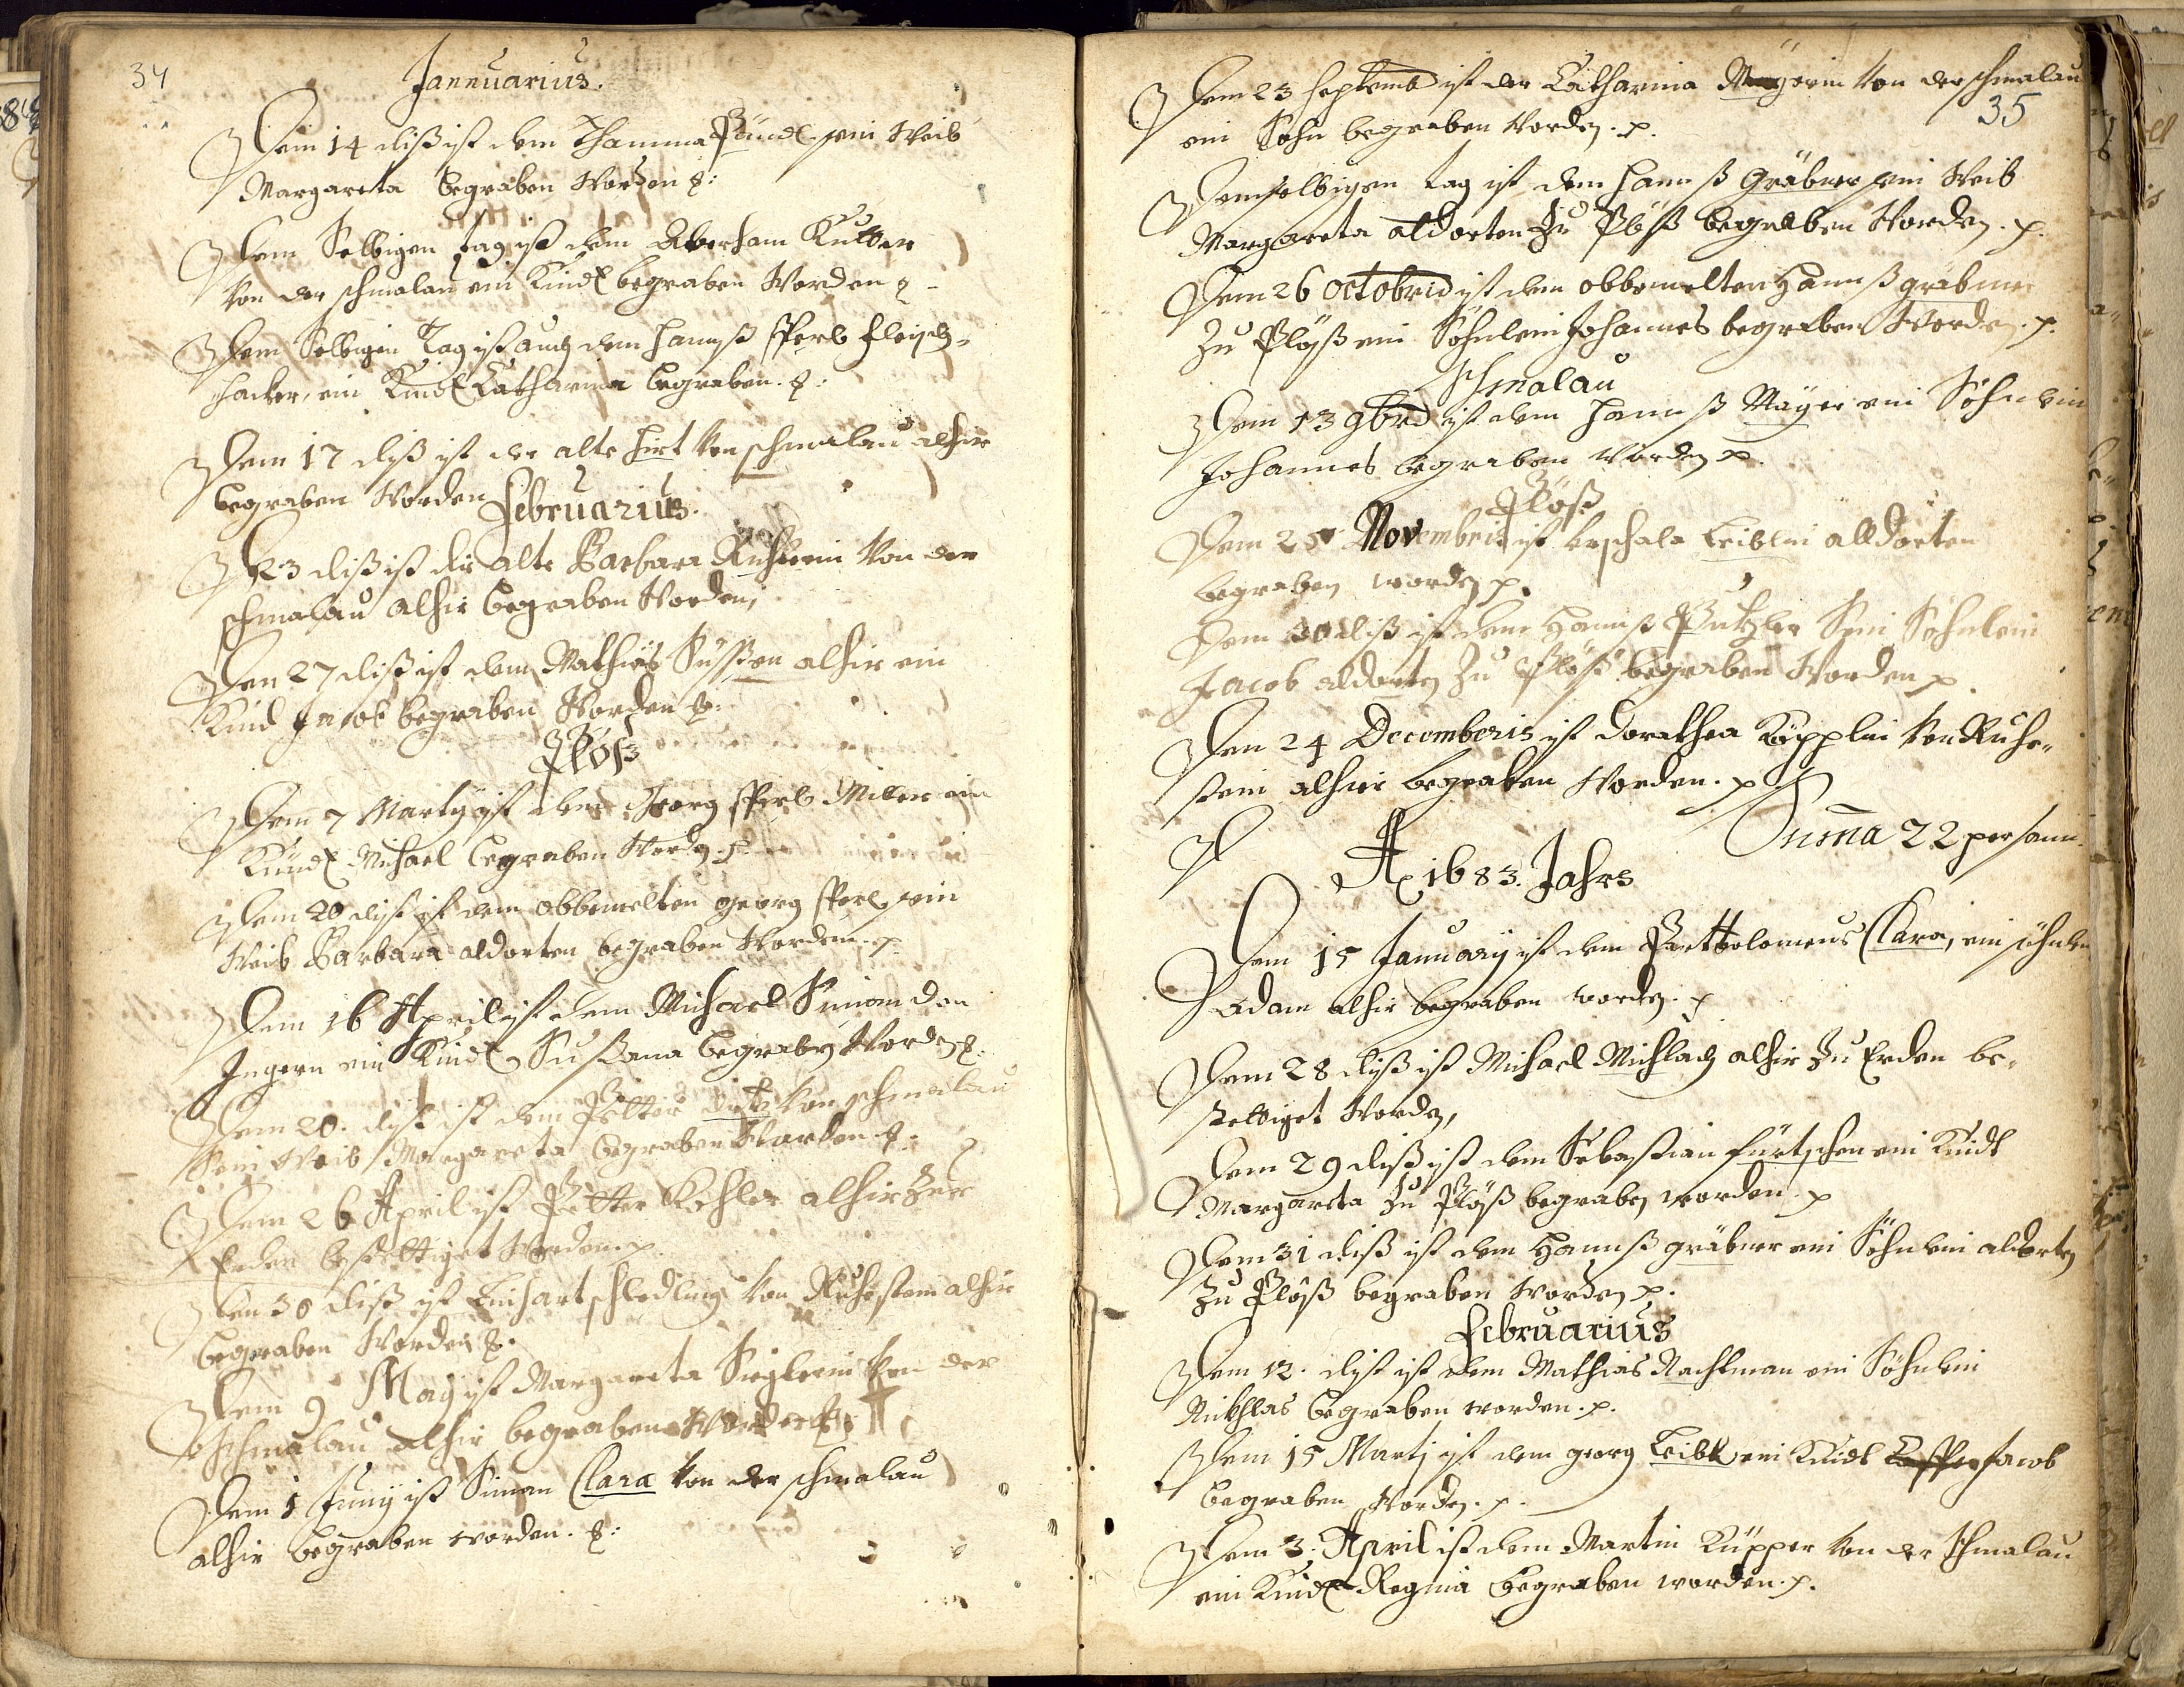 34
Jannuarius.
Dem 14 diß ist dem Thamma Pündl sein Weib
Margareta begraben Worden
Dem Selbigen Tag ist dem Aberham Kutter
Von der schmalau ein Kindl begraben Worden
Dem Selbigen Tag ist auch dem Hannß Sperl Fleisch-
hacker, ein Kindl Catharina begraben.
Dem 17 diß ist der alte Hirt Von schmalau alhir
begraben Worden
Februarius.
23 diß ist die alte Barbara Von der
schmalau alhir begraben Worden,
Den 27 diß ist dem Mathias Süssen alhir ein
Kind Jacob begraben Worden
Plöß
Dem 7 Martij ist dem Georg Sperl Miller ein
Kindl Michael begraben Worden
Dem 20 diß ist dem obbemelten georg Sperl sein
Weib Barbara aldorten begraben Worden. p
Dem 16 April ist dem Michael Simon den
Jegern ein Kindl Sußana begraben Worden
Dem 20. diß ist dem Petter Von schmalau
Sein Weib Margareta begraben Worden
Dem 26 April ist Petter Kohler alhir Zur
Erden bestettiget Worden. p.
Den 30 diß ist Linhart schedling Von Ruhestein alhir
begraben Worden
Dem 9 May ist Margareta Sieglerin Von der
schmalau alhir begraben Worden
Dem 1 Juny ist Siman Clara Von der schmalau
alhir begraben worden.
Dem 23 Septemb ist der Catharina Mayerin Von der schmalau
35
ein Sohn begraben Worden. p.
Demselbigen tag ist dem Hannß Gräbner sein Weib
Margareta aldorten Zu Plöß begraben Worden. p.
Dem 26 octobris ist dem obbemelten Hannß gräbner
Zu Plöß ein Söhnlein Johannes begraben Worden. p.
Schmalau
Dem 13 9bris ist dem Hannß Mayer ein Söhnlein
Johannes begraben Worden p.
Plöß
Dem 25 Novembris ist Leiblin alldorten
begraben worden p.
Dem 30 diß ist dem Hannß Putzler Sein Söhnlein
Jacob aldorten Zu Plöß begraben Worden p.
Den 24 Decemberis ist Dorathea Köpplin Von Ruhe-
stein alhier begraben Worden. p
Suma 22 persann.
A 1683. Jahrs
Dem 15 January ist dem Barttholomeus Clara, ein söhnlein
Adam alhir begraben worden. p
Dem 28 diß ist Michael Michlach alhir Zu Erden be-
stettiget Worden,
Dem 29 diß ist dem Sebastian fürtschen ein Kindl
Margareta Zu Plöß begraben worden. p
Dem 31 diß ist dem Hannß gräbner ein Söhnlein aldorten
Zu Plöß begraben Worden p.
Februarius
Dem 12. diß ist dem Mathias Nachtman ein Söhnlein
Nickhlas begraben worden. p.
Dem 15 Martj ist dem georg Leibl ein Kindl Jacob
begraben Worden. p.
Dem 3. April ist dem Martin Küpper Von der schmalau
ein Kindl Regina begraben worden. p.